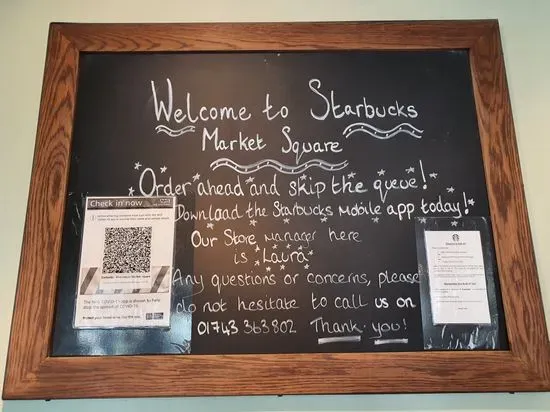 Welcome to Starbucks
Market Square
Order ahead and skip the queue!
Download the Starbucks Mobile app today!
Our Store manager here
is Laura
Any questions or concerns, please
do not hesitate to call us on
01743 363802 Thank you!
Check in now
The NHS COVID-19 app is shown to help
stop the spread of COVID-19